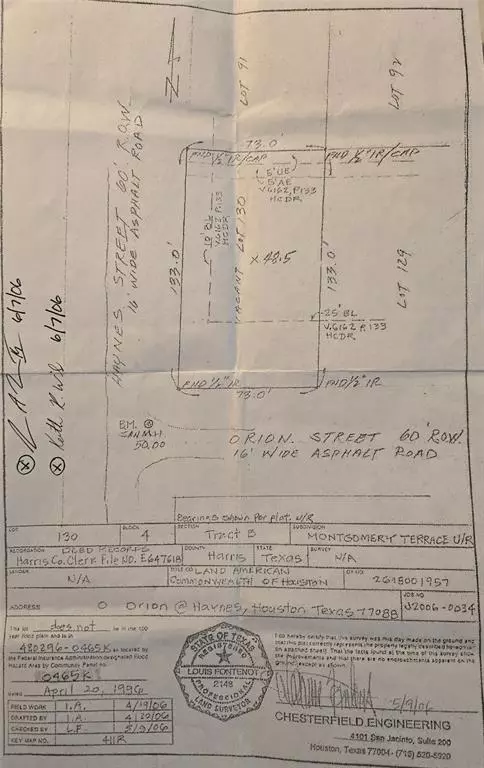 LOT 91
LOT 92
73.0'
FND ½" IR/CAP
FND ½" IR/CAP
5' UE
5' AE
V.6162, P.133
HCDR
10' BL
V.6162 P.133
HCDR
VACANT LOT 130
x 48.5
133.0'
133.0'
LOT 129
25' BL
V.6162 P.133
HCDR
FND ½" IR
FND ½" IR
73.0'
HAYNES STREET 60' R.O.W.
16' WIDE ASPHALT ROAD
6/7/06
6/7/06
B.M.
SAN.M.H.
50.00
ORION STREET 60' ROW
16' WIDE ASPHALT ROAD
Bearings shown per plat. U/R
LOT
130
BLOCK
4
SECTION
Tract B
SUBDIVISION
MONTGOMERY TERRACE U/R
RECORDATION
DEED RECORDS
Harris Co. Clerk File No. E647618
COUNTY
Harris
STATE
Texas
SURVEY
N/A
LENDER
N/A
TITLE CO.
LAND AMERICAN
COMMONWEALTH OF HOUSTON
GF NO.
2618001957
ADDRESS
0 Orion @ Haynes, Houston Texas 77088
JOB NO.
J2006-0034
This lot does not lie in the 100
year flood plain and is in
480296-0465K as located by
the Federal Insurance Administration designated Flood
Hazard Area by Community Panel no.
0465K
dated April 20, 1996
FIELD WORK I.A. 4/19/06
DRAFTED BY I.A. 4/20/06
CHECKED BY L.F. 5/9/06
KEY MAP NO. 411R
STATE OF TEXAS
REGISTERED
LOUIS FONTENOT
2148
PROFESSIONAL
LAND SURVEYOR
I do hereby certify that this survey was this day made on the ground and
that this plat correctly represents the property legally described hereon (or
on attached sheet). That the facts found at the time of this survey show
the improvements and that there are no encroachments apparent on the
ground, except as shown.
5/9/06
CHESTERFIELD ENGINEERING
4101 San Jacinto, Suite 200
Houston, Texas 77004 - (713) 520-5920